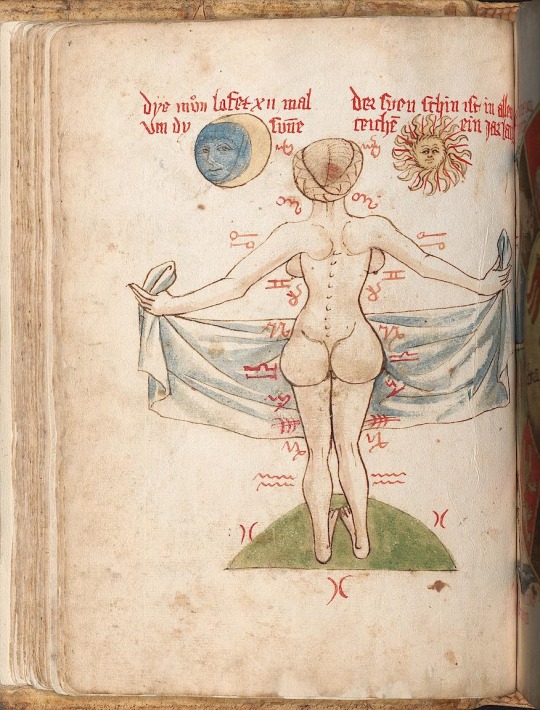 dye mon lofet xii mal
vm dy sune
der suen schin ist in allen
zeichē ein jar